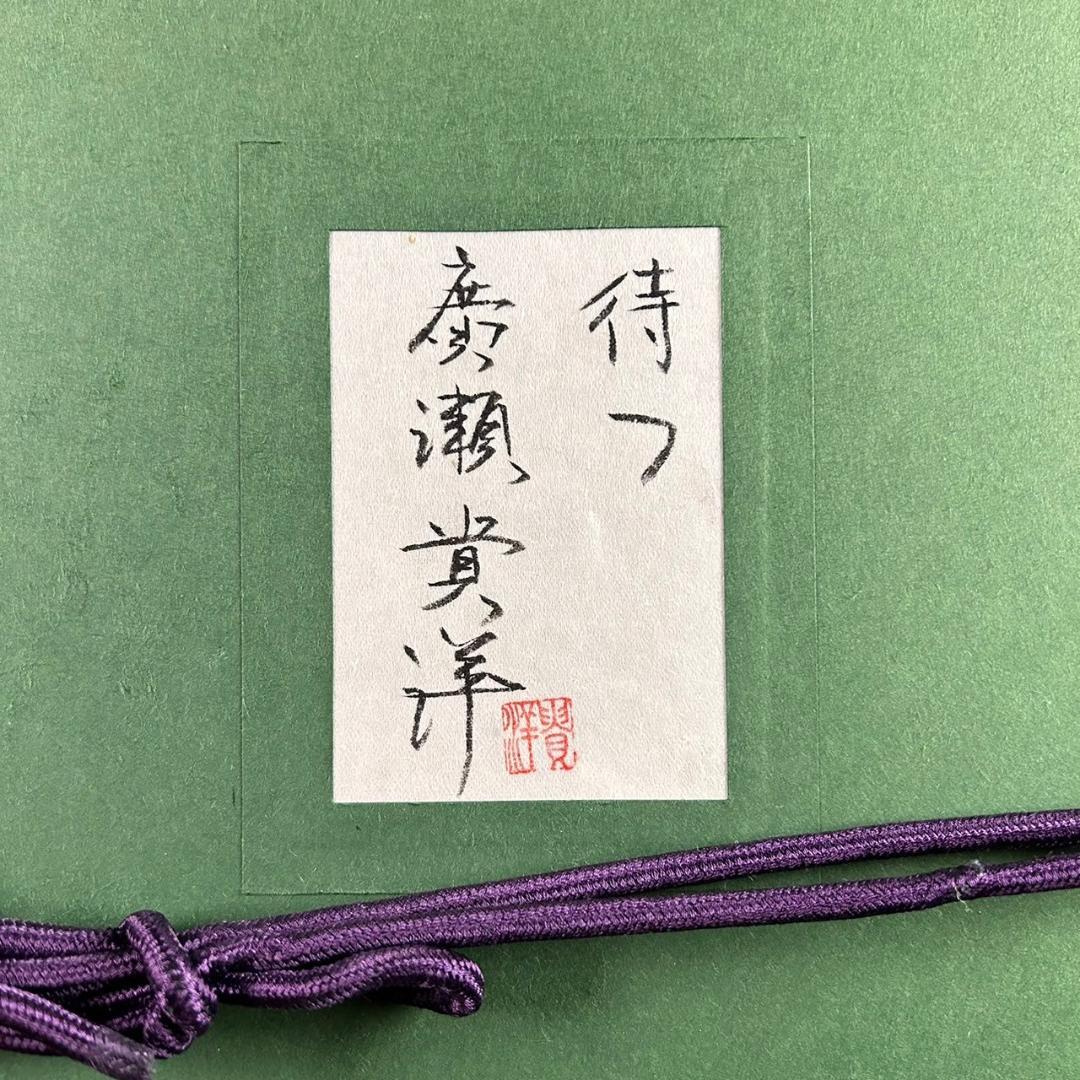 待つ
廣瀬貴洋
貴洋